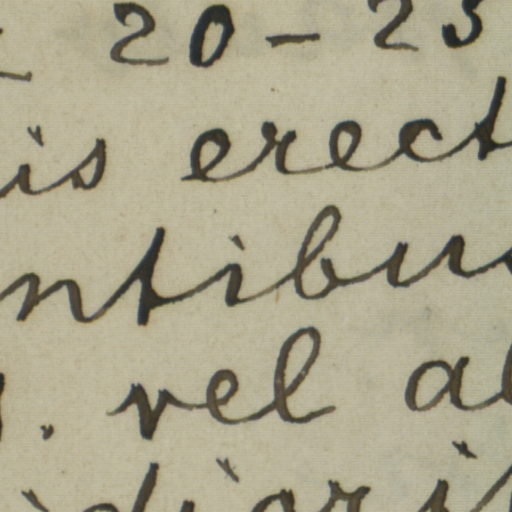 20 - 25
is erect
ntibus
. vel al